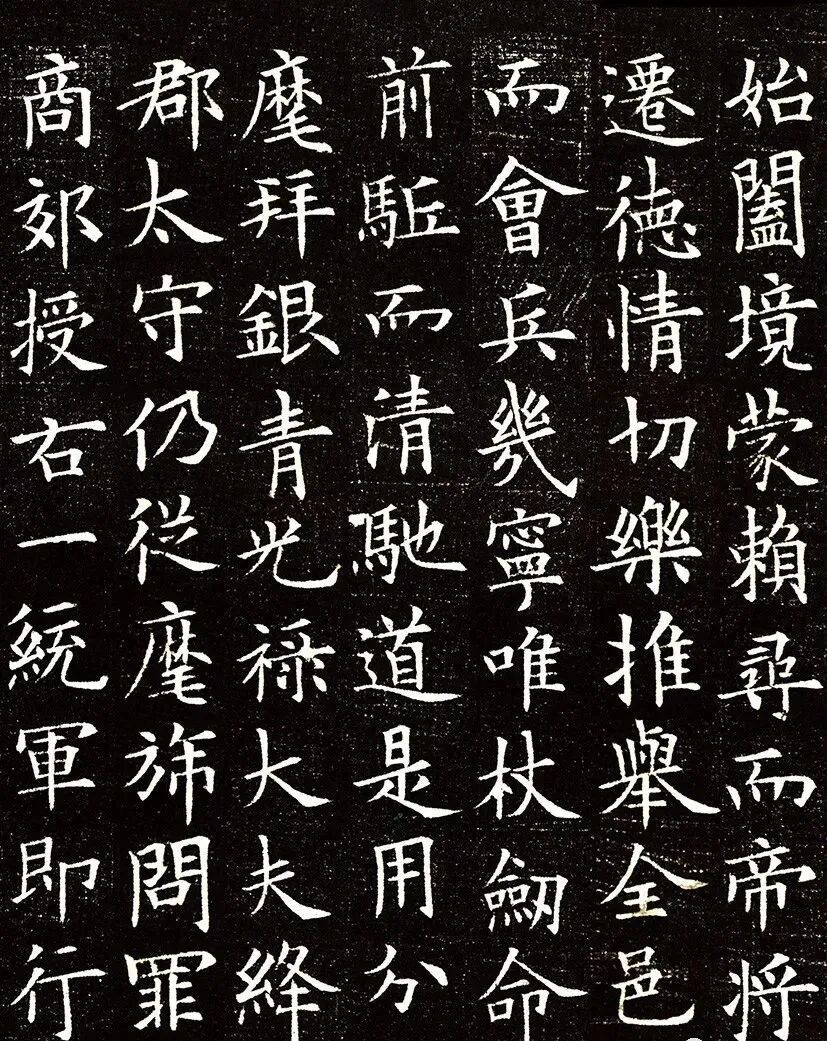 始闔境蒙賴尋而帝将
遷徳情切樂推舉全邑
而會兵幾寧唯杖劒命
前駈而清馳道是用分
麾拜銀青光禄大夫絳
郡太守仍従麾斾問罪
商郊授右一統軍即行